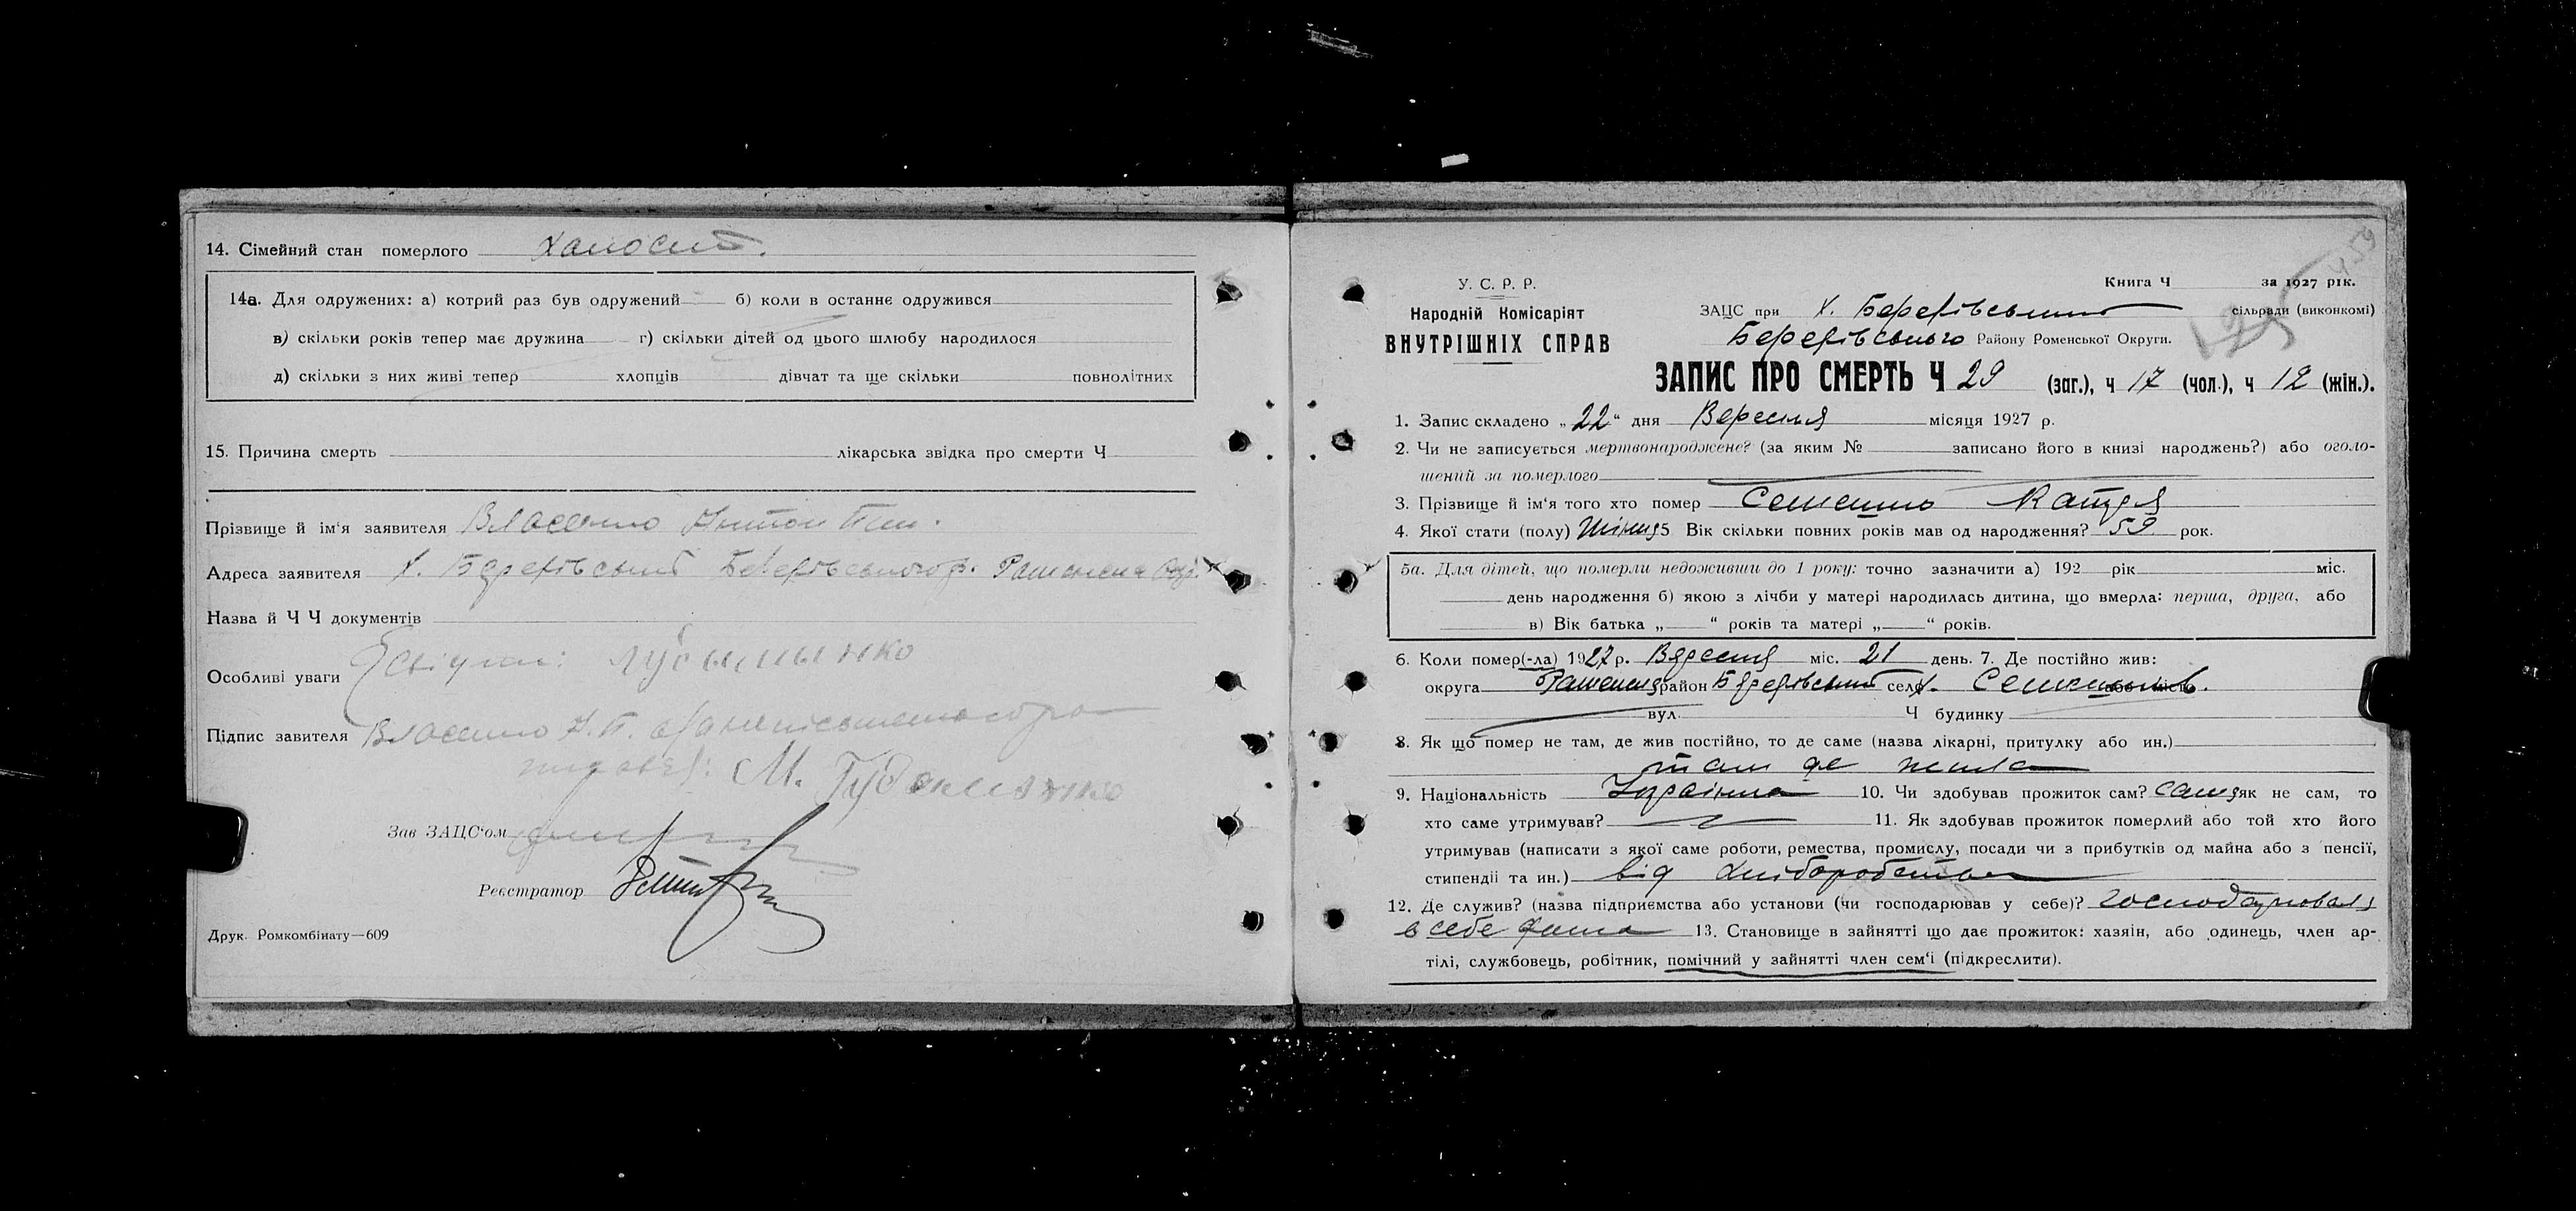 14. Сімейний стан померлого
14а. Для одружених: а) котрий раз був одружений б) коли в останнє одружився
в) скільки років тепер має дружина г) скільки дітей од цього шлюбу народилося
д) скільки з них живі тепер хлопців дівчат та ще скільки повнолітних
15. Причина смерть лікарська звідка про смерти Ч
Прізвище й ім'я заявителя Власенко Антон
Адреса заявителя х. Березівський Березівського р.
Назва й Ч Ч документів
Особливі уваги
Підпис завителя Власенко А. П.
М.
Зав ЗАЦС'ом
Реєстратор
Друк. Ромкомбінату—609
459
У. С. Р. Р.
Народній Комісаріят
ВНУТРІШНІХ СПРАВ
Книга Ч за 1927 рік.
ЗАЦС при х. Березівський сільради (виконкомі)
Березівського Району Роменської Округи.
ЗАПИС ПРО СМЕРТЬ Ч 29 (заг.), ч 17 (чол.), ч 12 (жін.).
1. Запис складено „22" дня Вересня місяця 1927 р.
2. Чи не записується мертвонароджене? (за яким № записано його в книзі народжень?) або оголо-
шений за померлого
3. Прізвище й ім'я того хто помер Семенко Катря
4. Якої стати (полу) 5 Вік скільки повних років мав од народження? 59 рок.
5а. Для дітей, що померли недоживши до 1 року: точно зазначити а) 192 рік міс.
день народження б) якою з лічби у матері народилась дитина, що вмерла: перша, друга, або
в) Вік батька „ " років та матері „ " років.
6. Коли помер(-ла) 1927 р. Вересня міс. 21 день. 7. Де постійно жив:
округа район Березівський село х. або місто
вул. Ч будинку
8. Як що помер не там, де жив постійно, то де саме (назва лікарні, притулку або ин.)
там де жила
9. Національність Українка 10. Чи здобував прожиток сам? сама як не сам, то
хто саме утримував? 11. Як здобував прожиток померлий або той хто його
утримував (написати з якої саме роботи, ремества, промислу, посади чи з прибутків од майна або з пенсії,
стипендії та ин.) від хліборобства
12. Де служив? (назва підприємства або установи (чи господарював у себе)? господарювала
в себе дома 13. Становище в зайнятті що дає прожиток: хазяін, або одинець, член ар-
тілі, службовець, робітник, помічний у зайнятті член сем'ї (підкреслити).